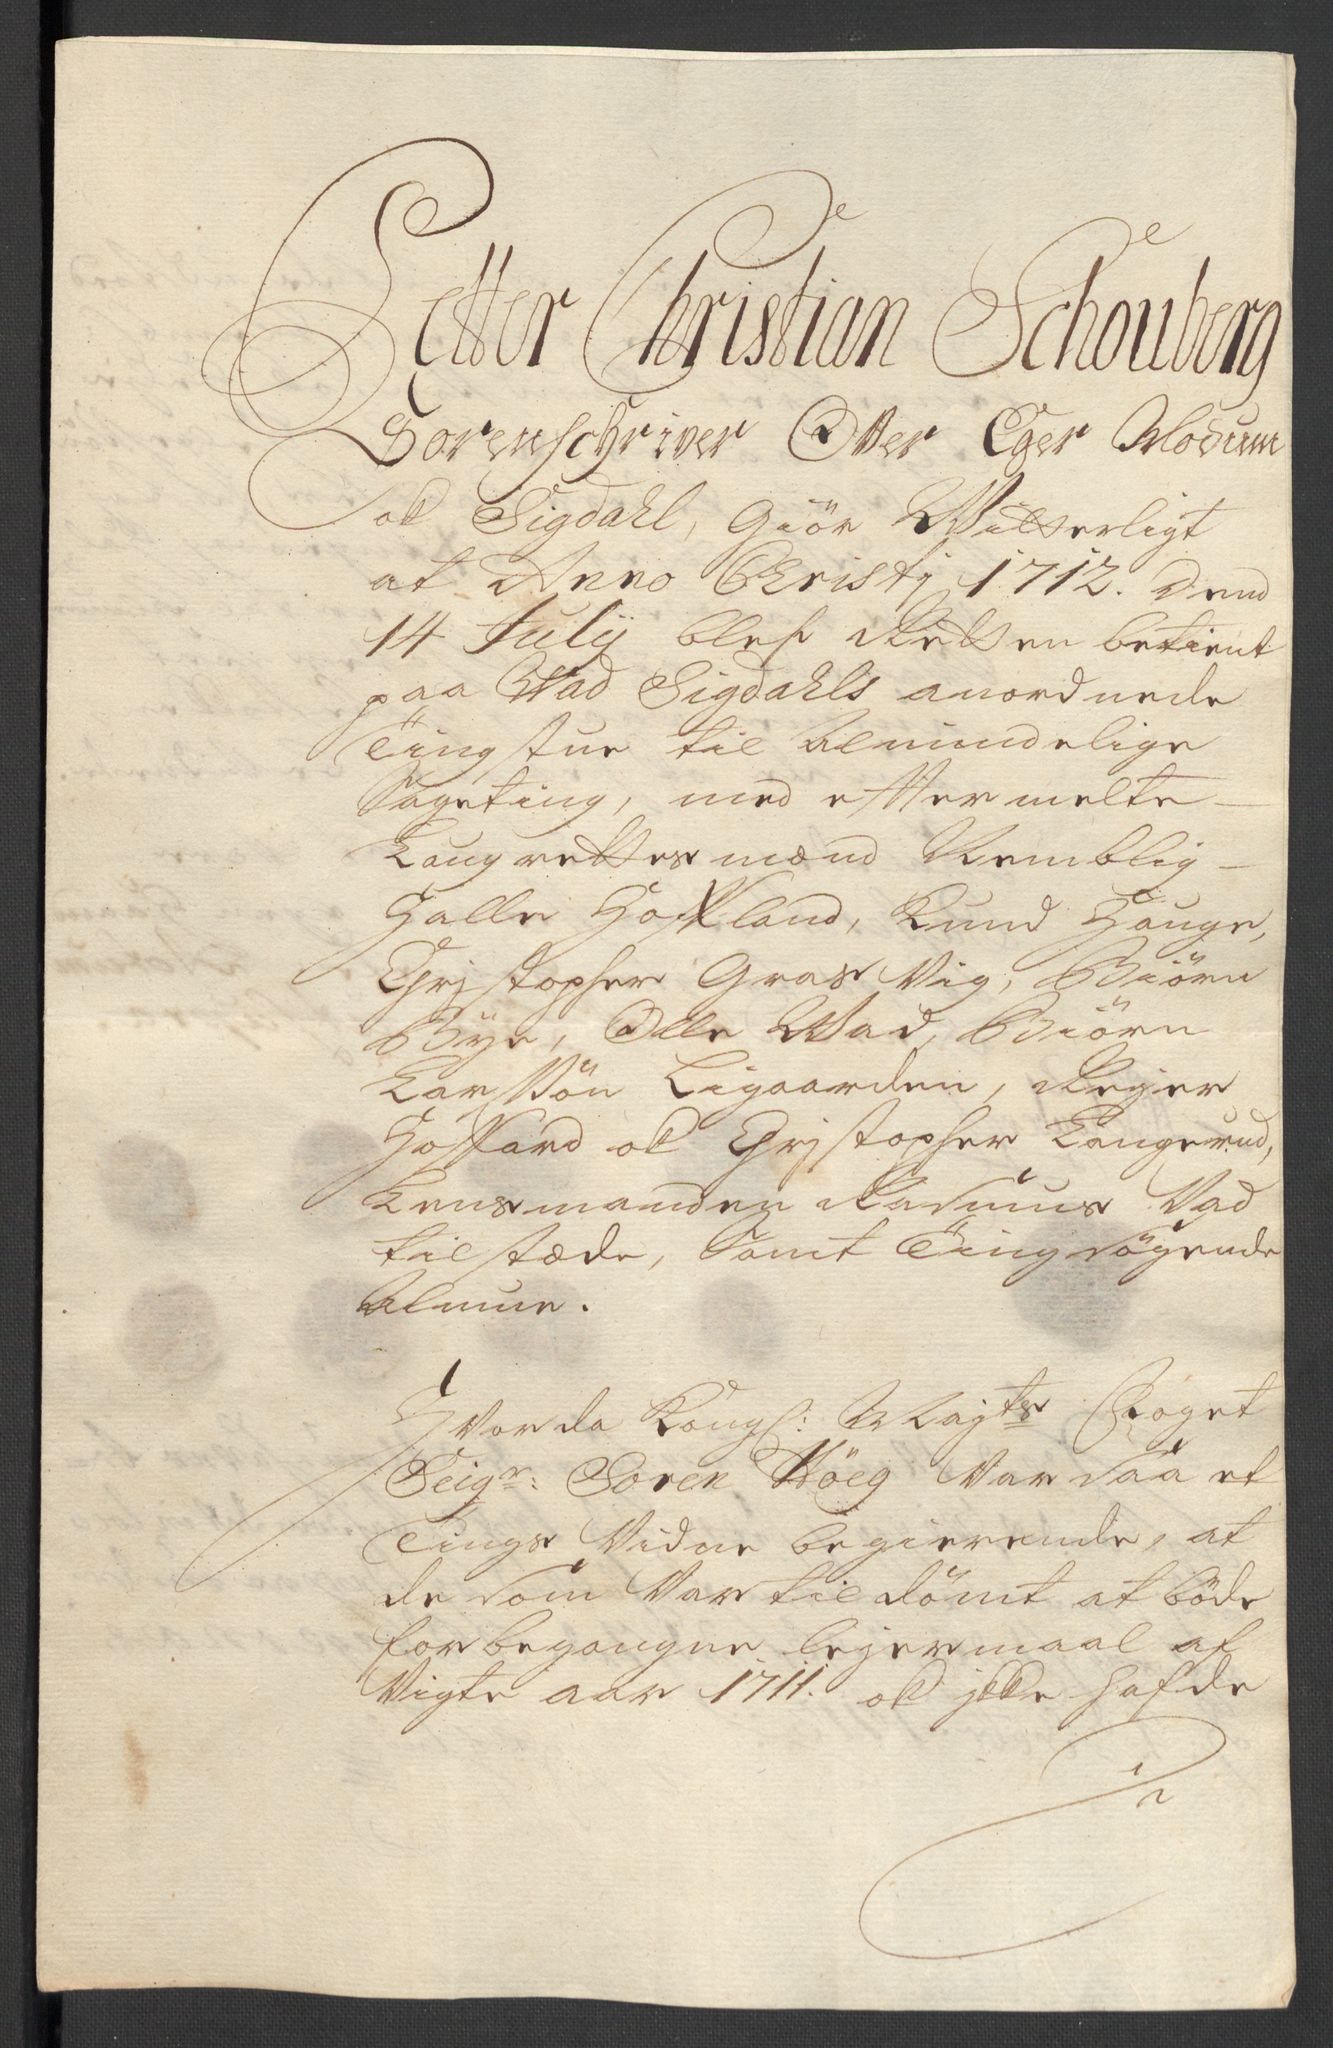 Petter Christian Schouberg
Sorenschriver Over Eger Modum
ok Sigdahl, Giör Vitterligt
at Anno Christj 1712. Dend
14 Julij blef Retten betient
paa Wad Sigdahls anordnede
Tingstue til Almindelige
Sageting, med effter melte
Laugrettes mænd Nemblig
Halle Hoffland, Knud Houge,
Chrjstopher Gras Vig, Biörn
Bye, Olle Wad, Biörn
Larssön Ligaarden, Rejer
Hoffard ok Chrjstopher Langerud,
Lensmanden Rasmus Vad
tilstæde, samt Ting søgende
Almue.
Hvor da Kongl: Mayts Foget
Seigr: Soren Höeg Var saa et
Tings Vidne begierende, at
de som Var til dömt at böde
for begangne lejermaal af
Vigte aar 1711. ok jkke hafde